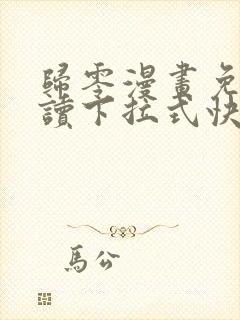 歸零漫畫免
讀下拉式快
馬公